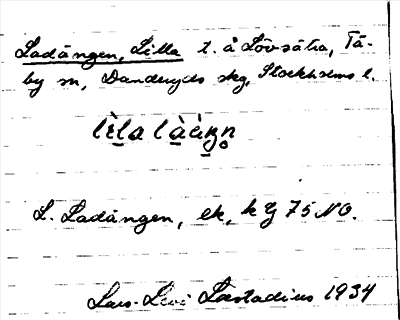 Ladängen, Lilla t. å Lövsätra, Tä-
by sn, Danderyds skg, Stockholms l.
L. Ladängen, ek, k Y 75 NO.
Lars-Levi Læstadius 1934